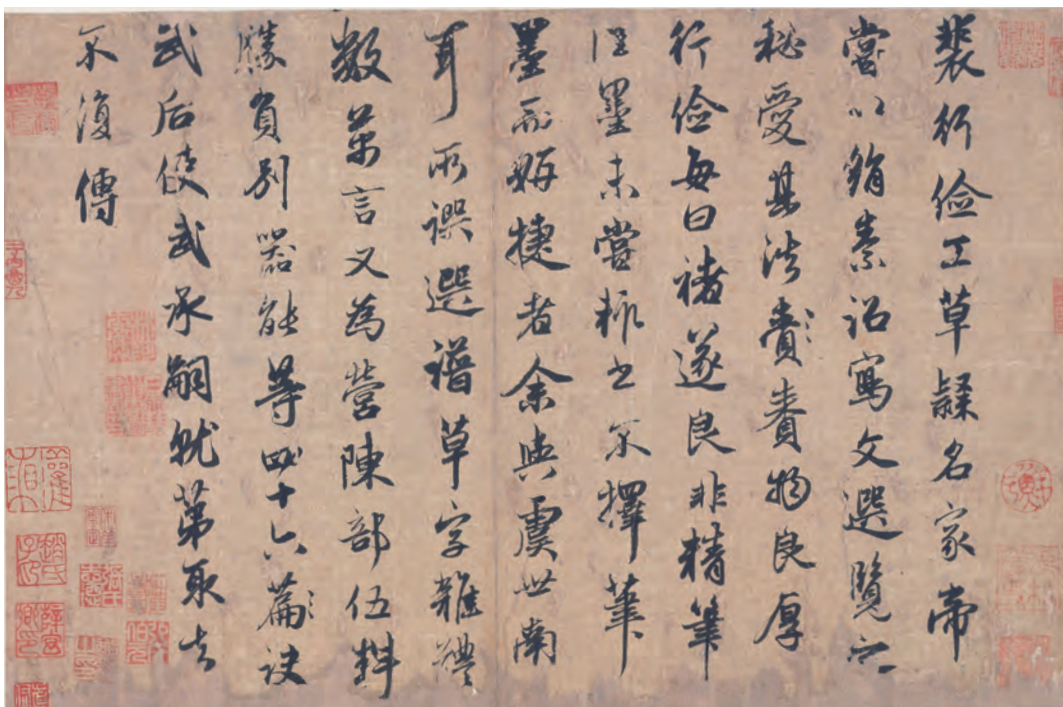 裴行儉工草隸名家帝
嘗以絹素詔寫文選覽之
秘愛其法賚物良厚
行儉每曰褚遂良非精筆
佳墨未嘗輒書不擇筆
墨而妍捷者余與虞世南
耳所譔選譜草字雜體
數萬言又為營陳部伍料
勝負別器能等四十六篇訣
武后使武承嗣就第取去
不復傳